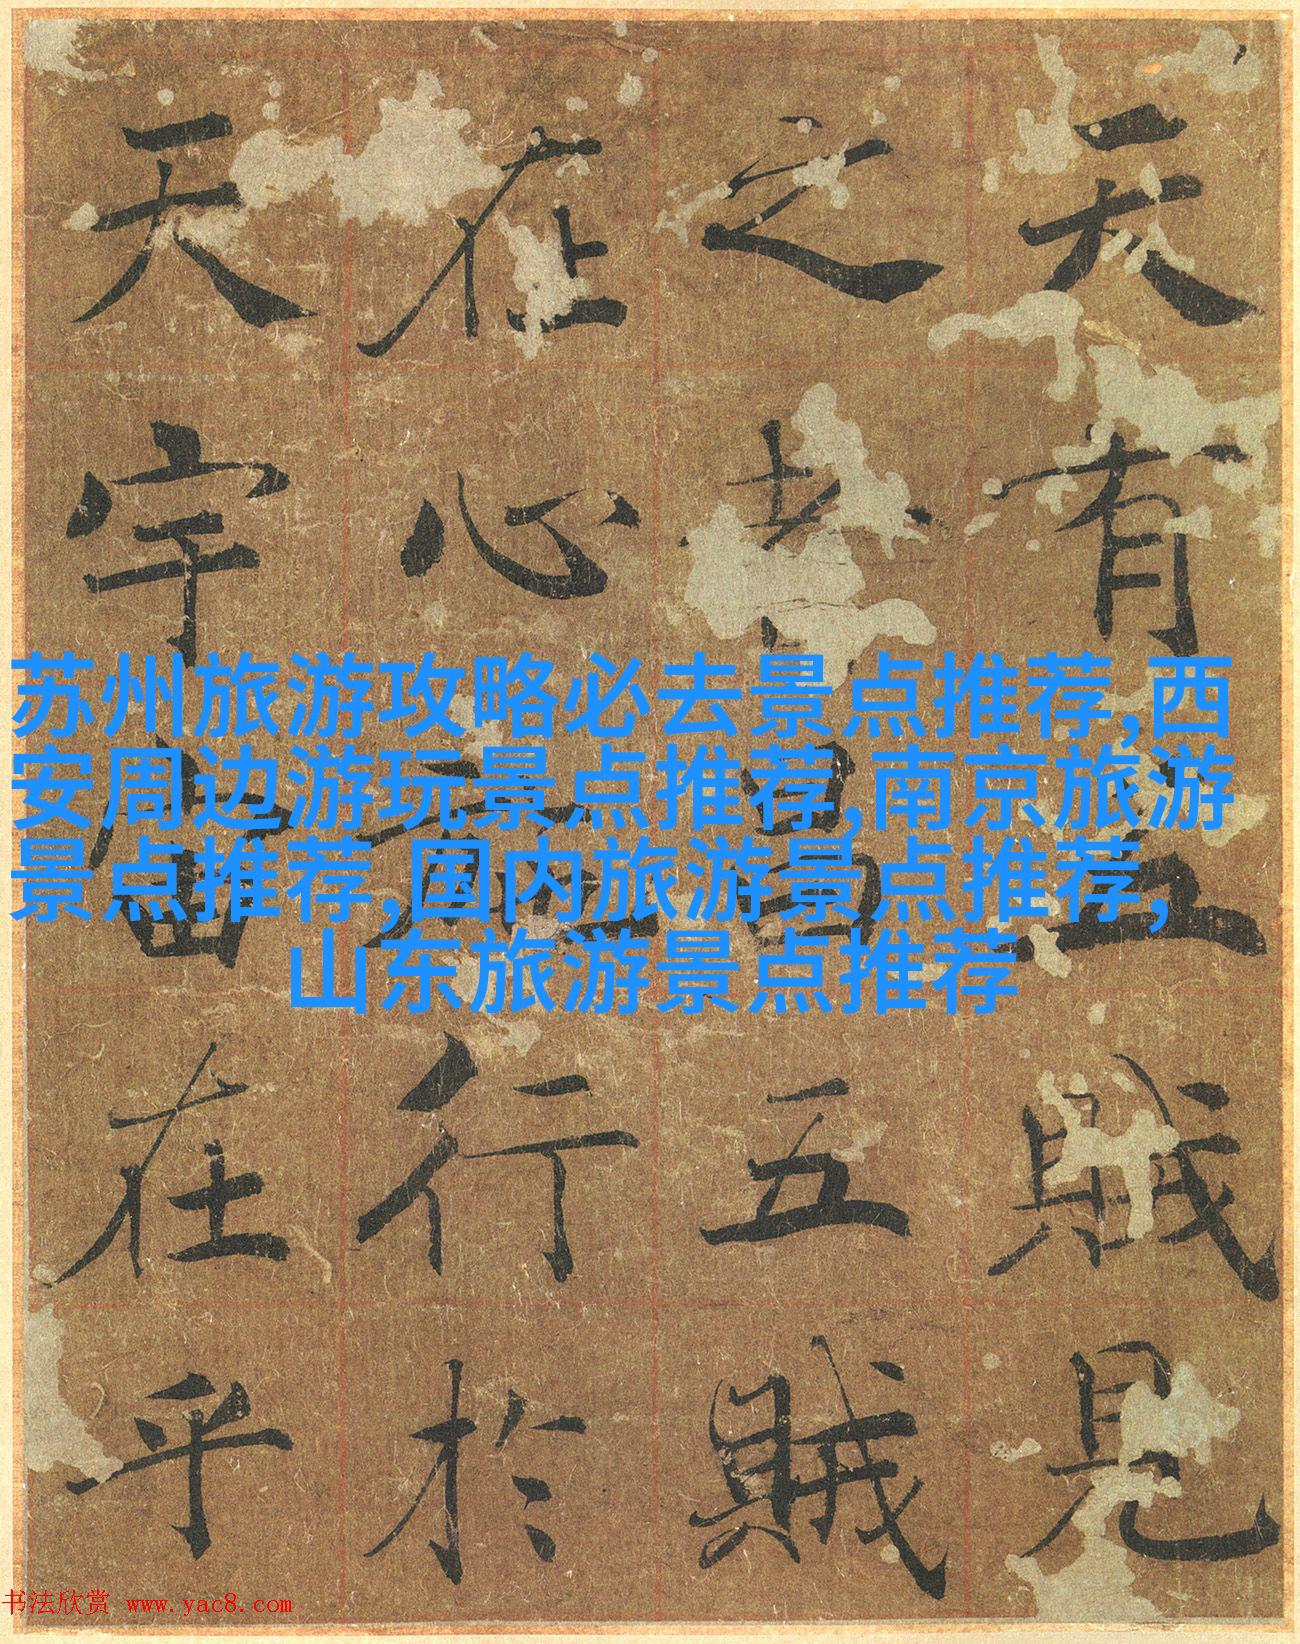 天有五賊見
之者昌五賊
在心施行於
天宇宙在乎
苏州旅游攻略必去景点推荐,西
安周边游玩景点推荐,南京旅游
景点推荐,国内旅游景点推荐,
山东旅游景点推荐
书法欣赏 www.yac8.com